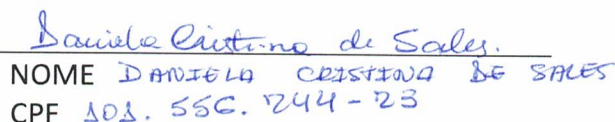 Daniela Cristina de Sales.
NOME DANIELA CRISTINA DE SALES
CPF 101. 556. 744-23